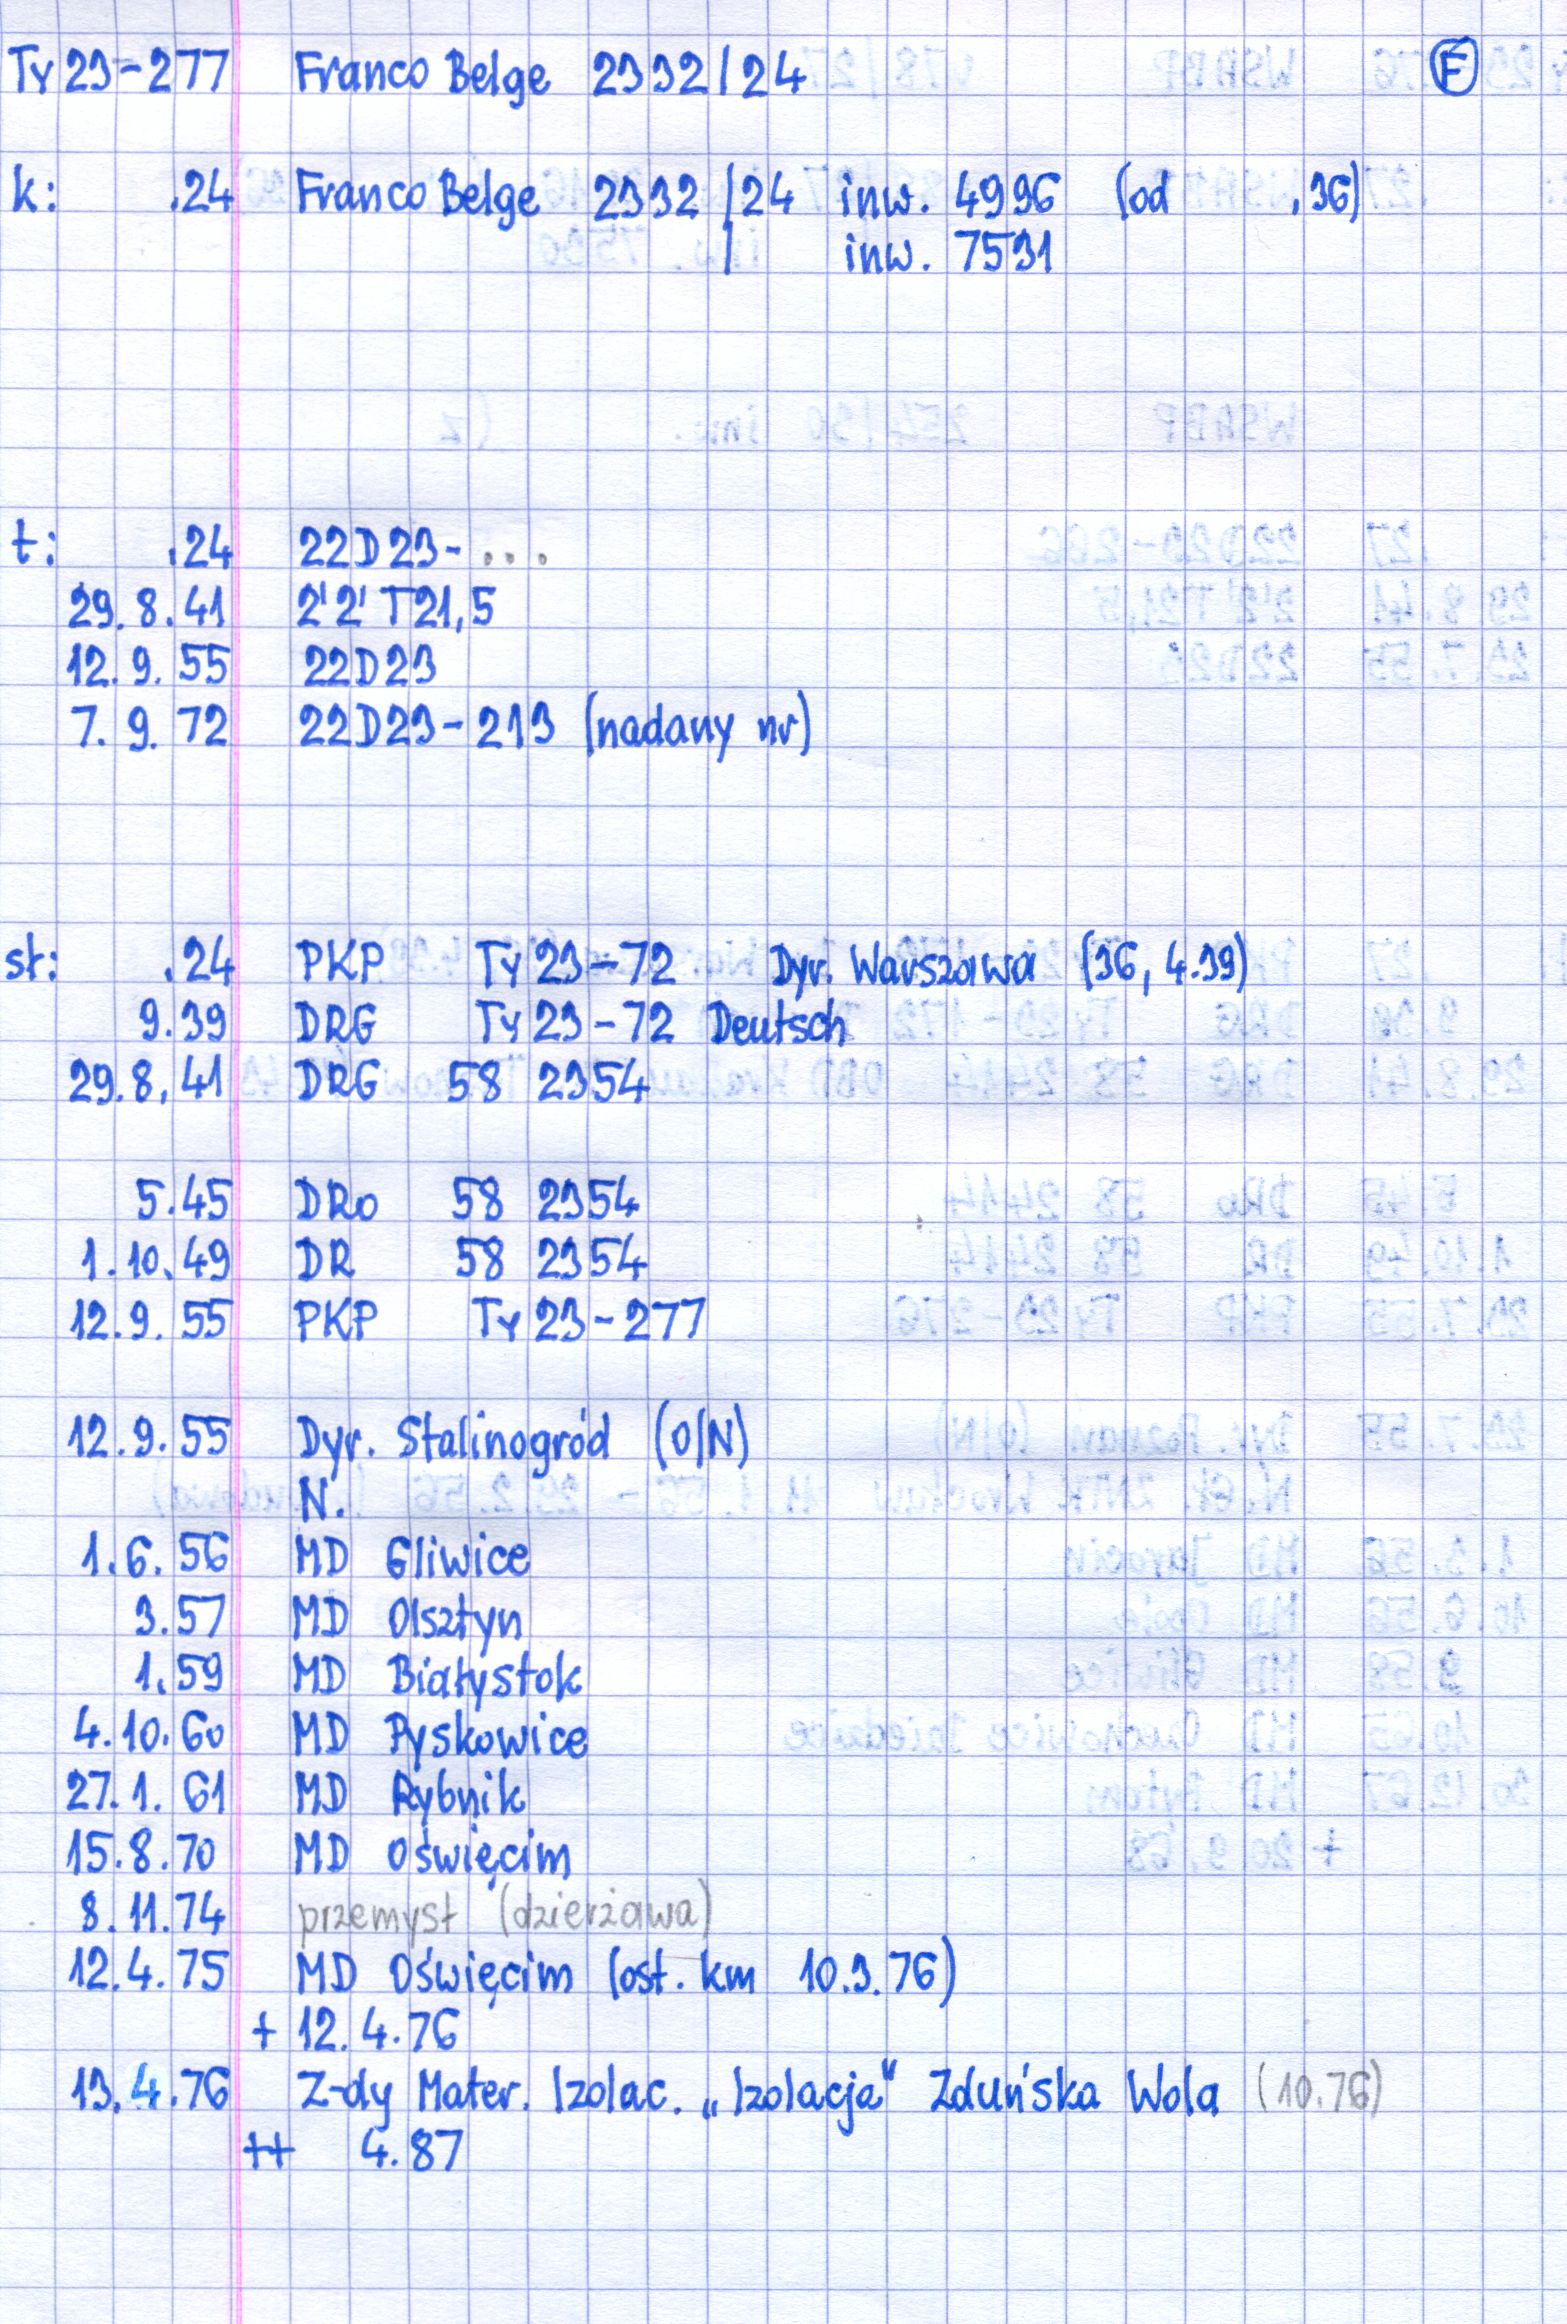 Ty23-277 Franco Belge 2332/24 F
k: .24 Franco Belge 2332/24 inw. 4996 (od .36)
/ inw. 7531
t: .24 22D23-...
29.8.41 2'2'T21,5
12.9.55 22D23
7.9.72 22D23-213 (nadany nr)
st: .24 PKP Ty23-72 Dyr. Warszawa (36, 4.39)
9.39 DRG Ty23-72 Deutsch
29.8.41 DRG 58 2354
5.45 DRo 58 2354
1.10.49 DR 58 2354
12.9.55 PKP Ty23-277
12.9.55 Dyr. Stalinogród (O/N)
N.
1.6.56 MD Gliwice
3.57 MD Olsztyn
1.59 MD Białystok
4.10.60 MD Pyskowice
27.1.61 MD Rybnik
15.8.70 MD Oświęcim
8.11.74 przemysł (dzierżawa)
12.4.75 MD Oświęcim (ost. km 10.3.76)
+ 12.4.76
13.4.76 Z-dy Mater. Izolac. „Izolacja" Zduńska Wola (10.76)
++ 4.87